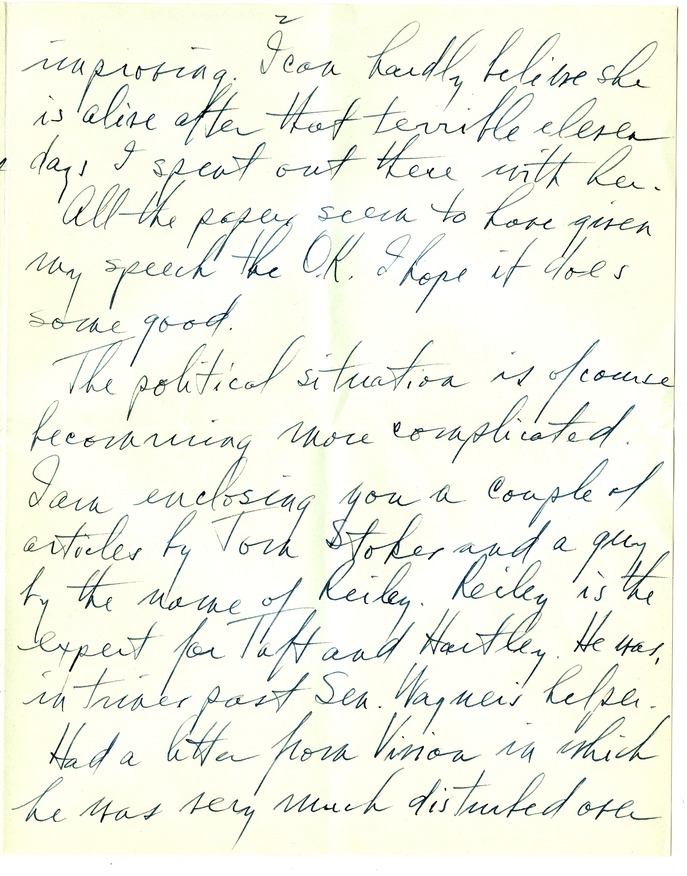 2
improving. I can hardly believe she
is alive after that terrible eleven
days I spent out there with her.
All the papers seem to have given
my speech the O.K. I hope it does
some good.
The political situation is of course
becomming more complicated.
I am enclosing you a couple of
articles by Tom Stokes and a guy
by the name of Reiley. Reiley is the
expert for Taft and Hartley. He was,
in times past Sen. Wagner's helper.
Had a letter from Vivian in which
he was very much disturbed over